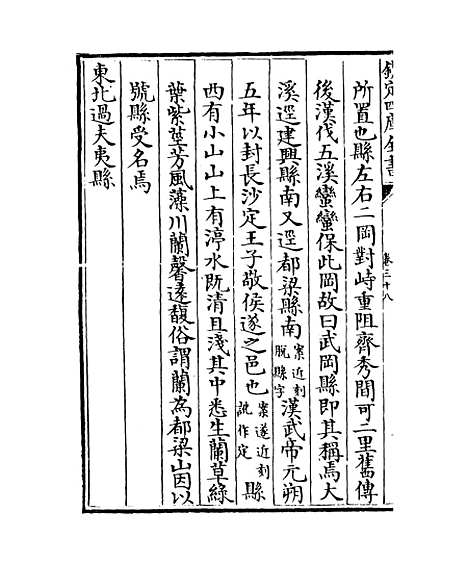 欽定四庫全書
卷三十八
所置也縣左右二岡對峙重阻齊秀間可二里舊傳
後漢伐五溪蠻蠻保此岡故曰武岡縣即其稱焉大
溪逕建興縣南又逕都梁縣南案近刻脫縣字漢武帝元朔
五年以封長沙定王子敬侯遂之邑也案遂近刻訛作定縣
西有小山山上有渟水既清且淺其中悉生蘭草綠
葉紫莖芳風藻川蘭馨遠馥俗謂蘭為都梁山因以
號縣受名焉
東北過夫夷縣